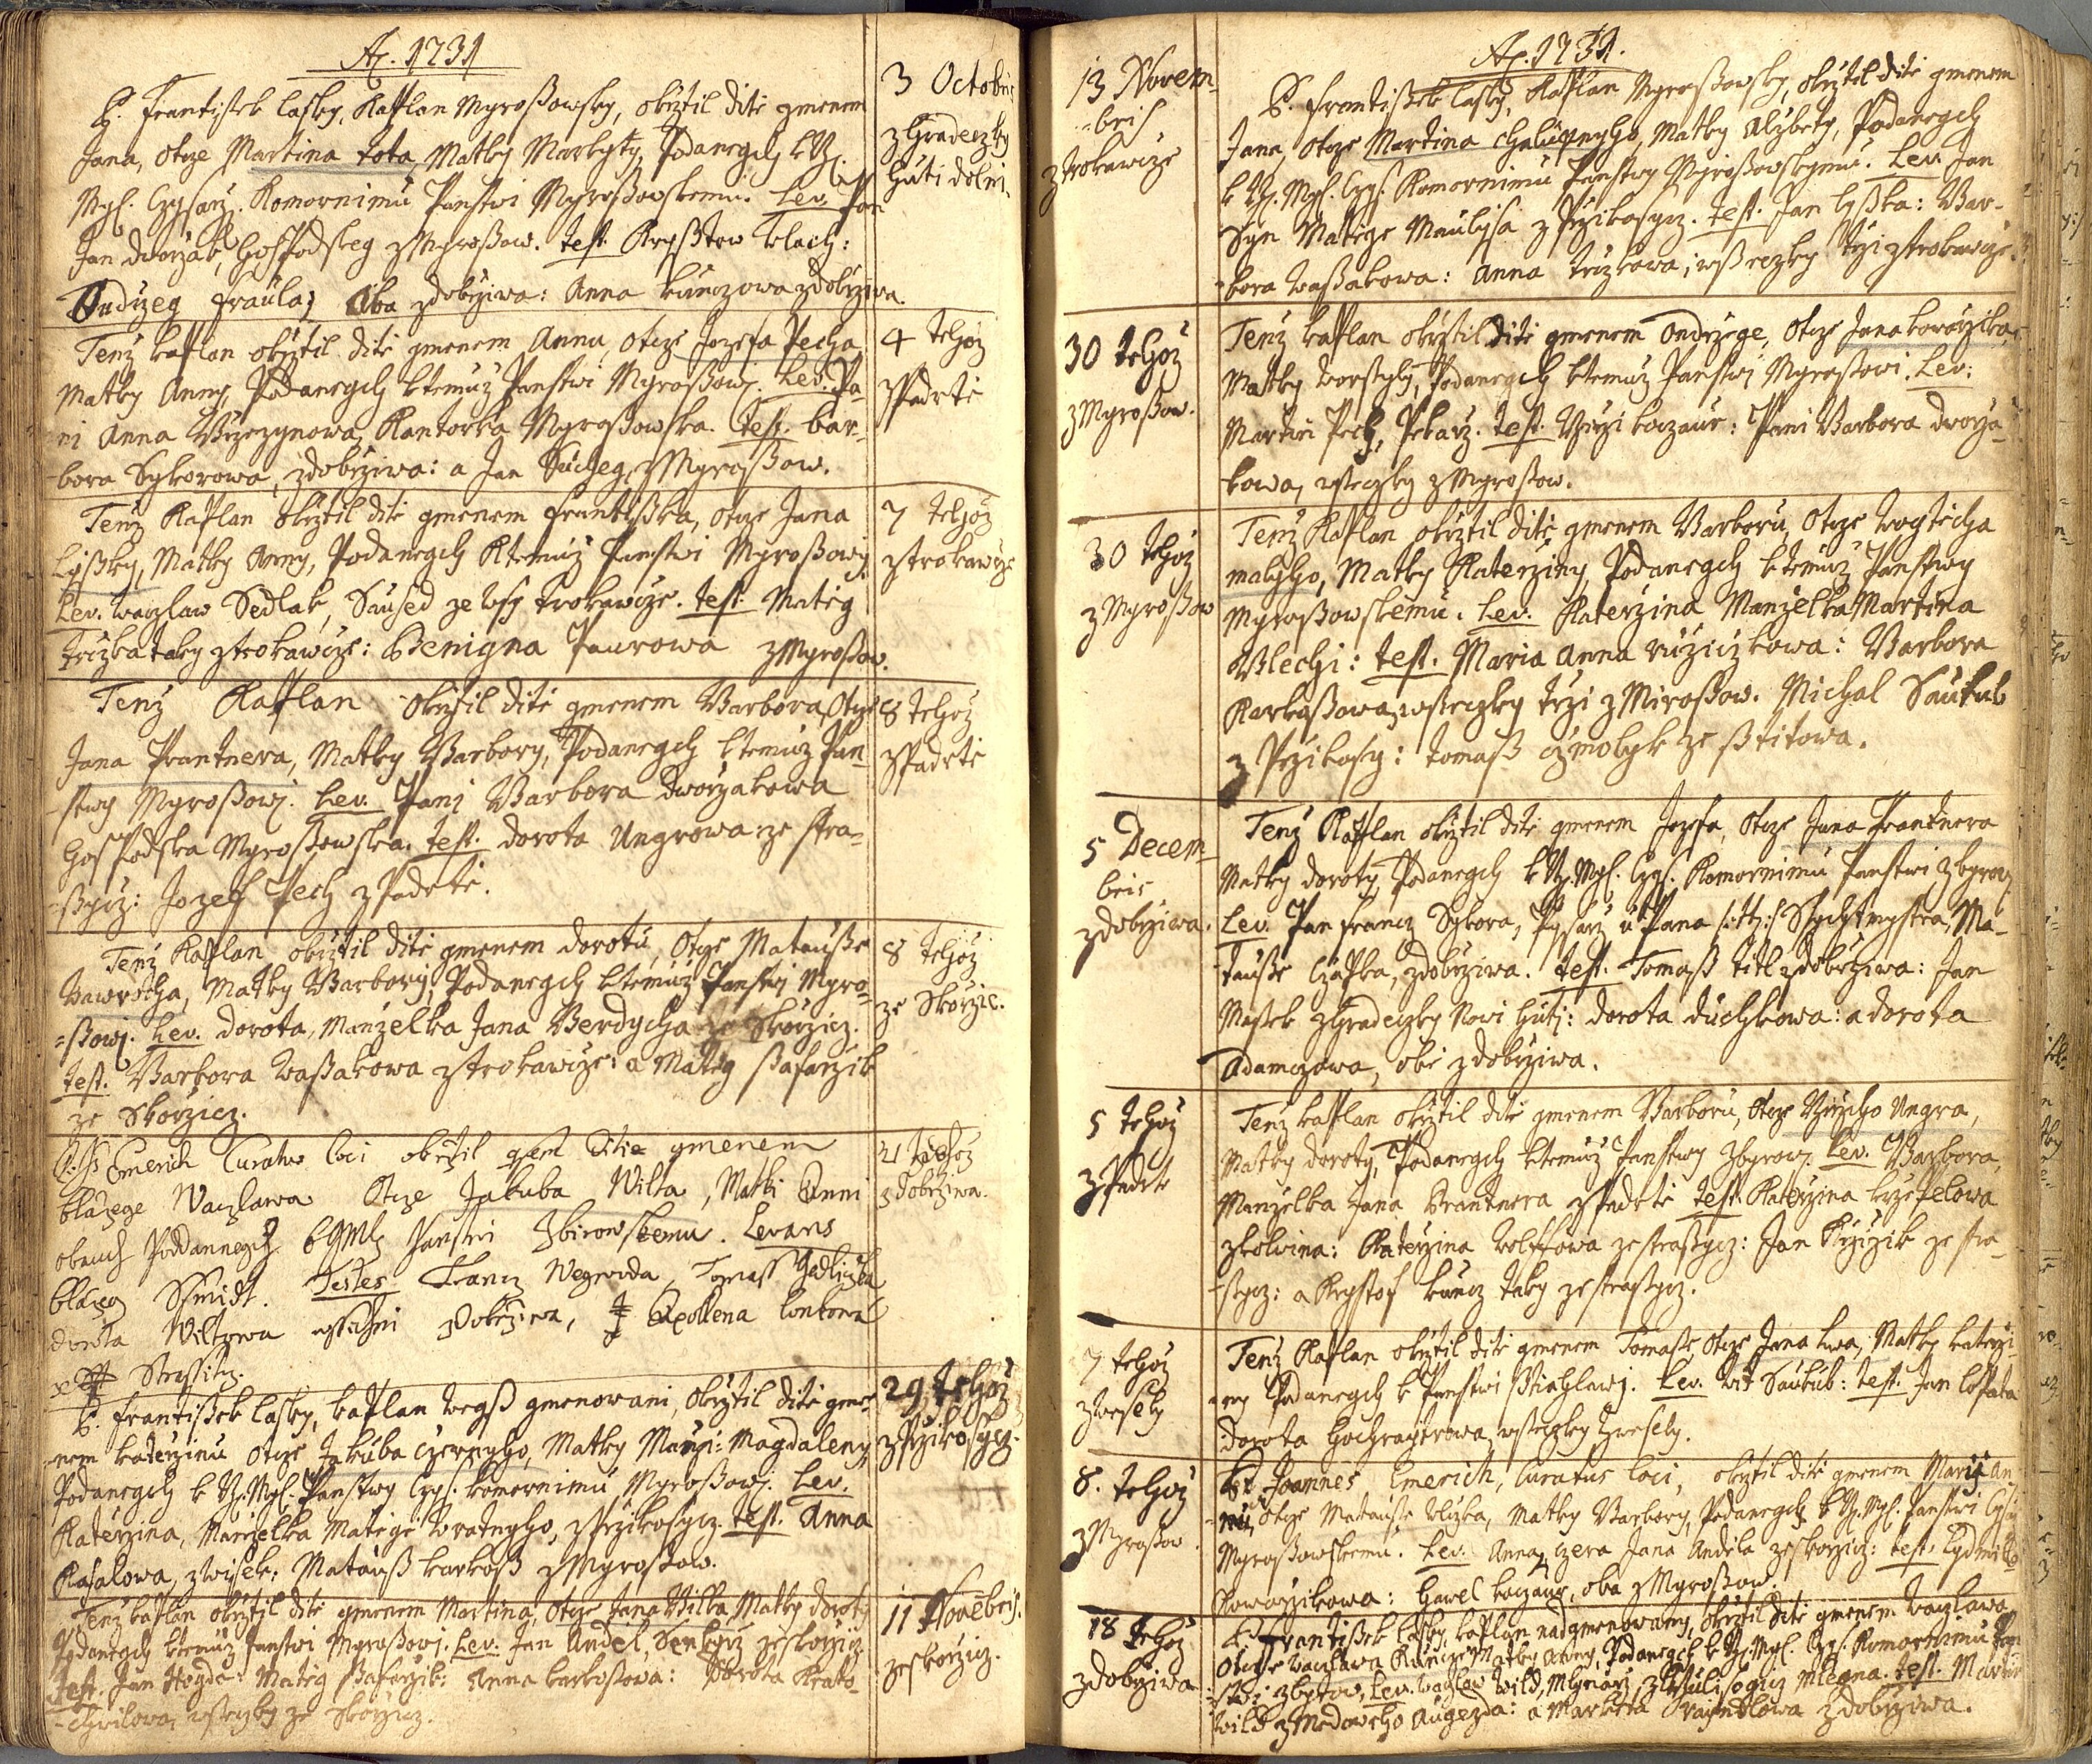 A. 1731
P. Frantissek Lasky, Kaplan Myroßowsky, okrztil dite gmenem
Jana, otcze Martina Kota, Matky Markyty, Podanegch k
Mgl. Czysarz. Komornimu Panstwi Myroßowskemu. Lev. Pan
Jan Dworzak, Hospodskeg z Myroßow. test. Kryßtow
Ondrzeg Fraula, oba z Dobrziwa: Anna Kunczowa z Dobrziwa.
3 Octobris
z Hradeczky
Huti dolni.
Tenz kaplan okrztil dite gmenem Annu, otcze Jozefa Pecha,
Matky Anny, Podanegch ktemuz Panstwi Myroßowj. Lev. Pa-
ni Anna Brzezynowa, Kantorka Myroßowska. test. Bar-
bora Sykorowa, z Dobrziwa: a Jan Sucheg, z Myroßow.
4 tehoz
z Padrte
Tenz Kaplan okrztil dite gmenem Frantißka, otcze Jana
Lißky, Matky Anny, Podanegch ktemuz Panstwi Myroßowj
Lev. Waczlaw Sedlak, Saused ze wsy Trokawcze. test. Mateg
Trczka taky z Trokawcze: Benigna Paurowa z Myroßow.
7 tehoz
z Trokawcze
Tenz Kaplan okrztil dite gmenem Barbora, Otcze
Jana Prantnera, Matky Barbory, Podanegch ktemuz Pan-
stwy Myroßowj. Lev. Pani Barbora Dworzakowa
Hospodska Myroßowska. test. Dorota Ungrowa ze Stra-
ßycz: Jozeff Pech z Padrte.
8 tehoz
z Padrte
Tenz Kaplan okrztil dite gmenem Dorotu, Otcze Matauße
Bawrocha, Matky Barbory, Podanegch ktemuz Panstwj Myro-
=ßowj. Lev. Dorota, Manzelka Jana Berdycha ze Skorzicz.
test. Barbora Waßakowa z Trokawcze: a Mateg Safarzik
ze Skorzicz.
8 tehoz
ze Skorzic.
Emerich Curatus loci okrztil gmenem
Blazege Waczlawa Otcze Jakuba Wilta, Matki Anni
obauch Poddannegch Panstwi Zbirowskemu. Levans
Blazeg Schmidt. Testes Francz Tomass Jedliczka
Dorota Wiltowa z Dobrziwa, Apollena
Strassitz.
21 tehoz
z Dobrziwa.
P. Frantißek Lasky, kaplan weyß gmenowani, okrztil dite gme-
nem Katerzinu otcze Jakuba Czerneho, Matky Mariji Magdaleny,
Podanegch k Mgl. Panstwy Czys. Komornimu, Myroßowj. Lev.
Katerzina, Manzelka Matege Wratnyho, z Przikosycz. test. Anna
Kasalowa, z Wisek: Matauß Karkoß z Myroßow.
29 tehoz
z Przikosycz.
Tenz kaplan okrztil dite gmenem Martina, Otcze Jana Wilta, Matky Doroty
Podanegch ktemuz Panstwi Myroßowj. Lev. Jan Andel, ze Skorzicz.
test. Jan Mateg Safarzik: Anna Karkoßowa: Dorota Krato-
chwilowa, wßeczky ze Skorzicz.
11 Novebris.
ze Skorzicz.
A. 1731.
P. Frantißek Lasky, Kaplan Myroßowsky, okrztil dite gmenem
Jana, otcze Martina Chalupnyho, Matky Alzbety, Podanegch
k Mgl. Czys. Komornimu Panstwy Myroßowskymu. Lev. Jan
Syn Matege Maulisa z Przikosycz. test. Jan Lyßka: Bar-
bora Waßakowa: Anna Trczkowa, wßeczky trzi z Trokawcze.
13 Novem-
=bris,
z Trokawcze
Tenz kaplan okrztil dite gmenem Ondrzege, otcze Jana Kowarzika,
Matky Worssyly, Podanegch ktemuz Panstwj Myroßowi. Lev.
Martin Pech, Pekarz. test. Girzi Koczaur: Pani Barbora Dworza-
kowa, wßeczky z Myroßow.
30 tehoz
z Myroßow.
Tenz Kaplan okrztil dite gmenem Barboru, otcze Wogtecha
Malyho, Matky Katerziny, Podanegch ktemuz Panstwy
Myroßowskemu. Lev. Katerzina Manzelka Martina
test. Maria Anna Ruziczkowa: Barbora
Karkoßowa, wßeczky trzi z Miroßow. Michal Saukub
z Przikosy: Tomaß Czmolyk ze Sstitowa.
30 tehoz
z Myroßow
Tenz Kaplan okrztil dite gmenem Jozefa, otcze Jana Prantnera
Matky Doroty, Podanegch k Mgl. Czys. Komornimu Panstwi Zbyrow.
Lev. Pan Francz Sykora, Pysarz u Pana Ssychtmystra, Ma-
tauße Czapka, z Dobrziwa. test. Tomaß Titl z Dobrziwa: Jan
Maßek z Hradeczky Nowi Huti: Dorota Duchkowa: a Dorota
Adamczowa, obe z Dobrziwa.
5 Decem-
bris
z Dobrziwa.
Tenz kaplan okrztil dite gmenem Barboru, Otcze Girzyho Ungra,
Matky Doroty, Podanegch ktemuz Panstwy Zbyrow. Lev. Barbora,
Manzelka Jana Brantnera z Padrte test. Katerzina
z Kolwina: Katerzina Wolffowa ze Straßycz: Jan Krziczik ze Stra-
ßycz: a Krystof Kuncz taky ze Straßycz.
5 tehoz
z Padrte
Tenz Kaplan okrztil dite gmenem Tomaße otcze Jana Lwa, Matky Katerzi-
ny Podanegch k Panstwi Sstiahlawj. Lev. Wit Saukub: test. Jan Lopata
Dorota wßeczky z Wesely.
7 tehoz
z Wesely
P. Joannes Emerich, Curatus loci, okrztil dite gmenem Marij An-
nu, otcze Matauße Matky Barbory, Podanegch k Mgl. Panstwi Czys.
Myroßowskemu. Lev. Anna, Czera Jana Andela ze Skorzicz: test. Lydmilla
Kowarzikowa: Hawel Koczaur, oba z Myroßow.
8. tehoz
z Myroßow.
P. Frantißek Lasky, kaplan nadgmenowany, okrztil dite gmenem Waczlawa
Otcze Waczlawa Kuncze Matky Anny, Podanegch k Mgl. Czys. Komornimu Pan-
stwi Zbyrow. Lev. Waczlaw Wild, Mlynarz, Mlegna. test. Martin
Wild z Medoweho Augezda: a Marketa z Dobrziwa.
18 tehoz
z Dobrziwa